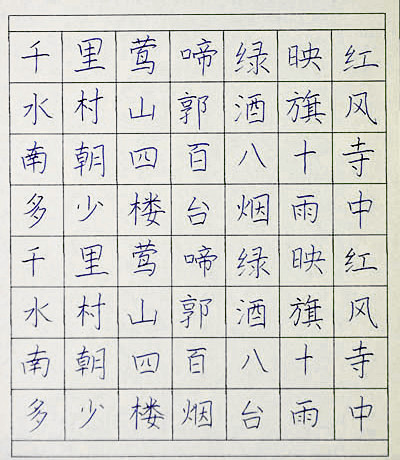 千里莺啼绿映红
水村山郭酒旗风
南朝四百八十寺
多少楼台烟雨中
千里莺啼绿映红
水村山郭酒旗风
南朝四百八十寺
多少楼烟台雨中